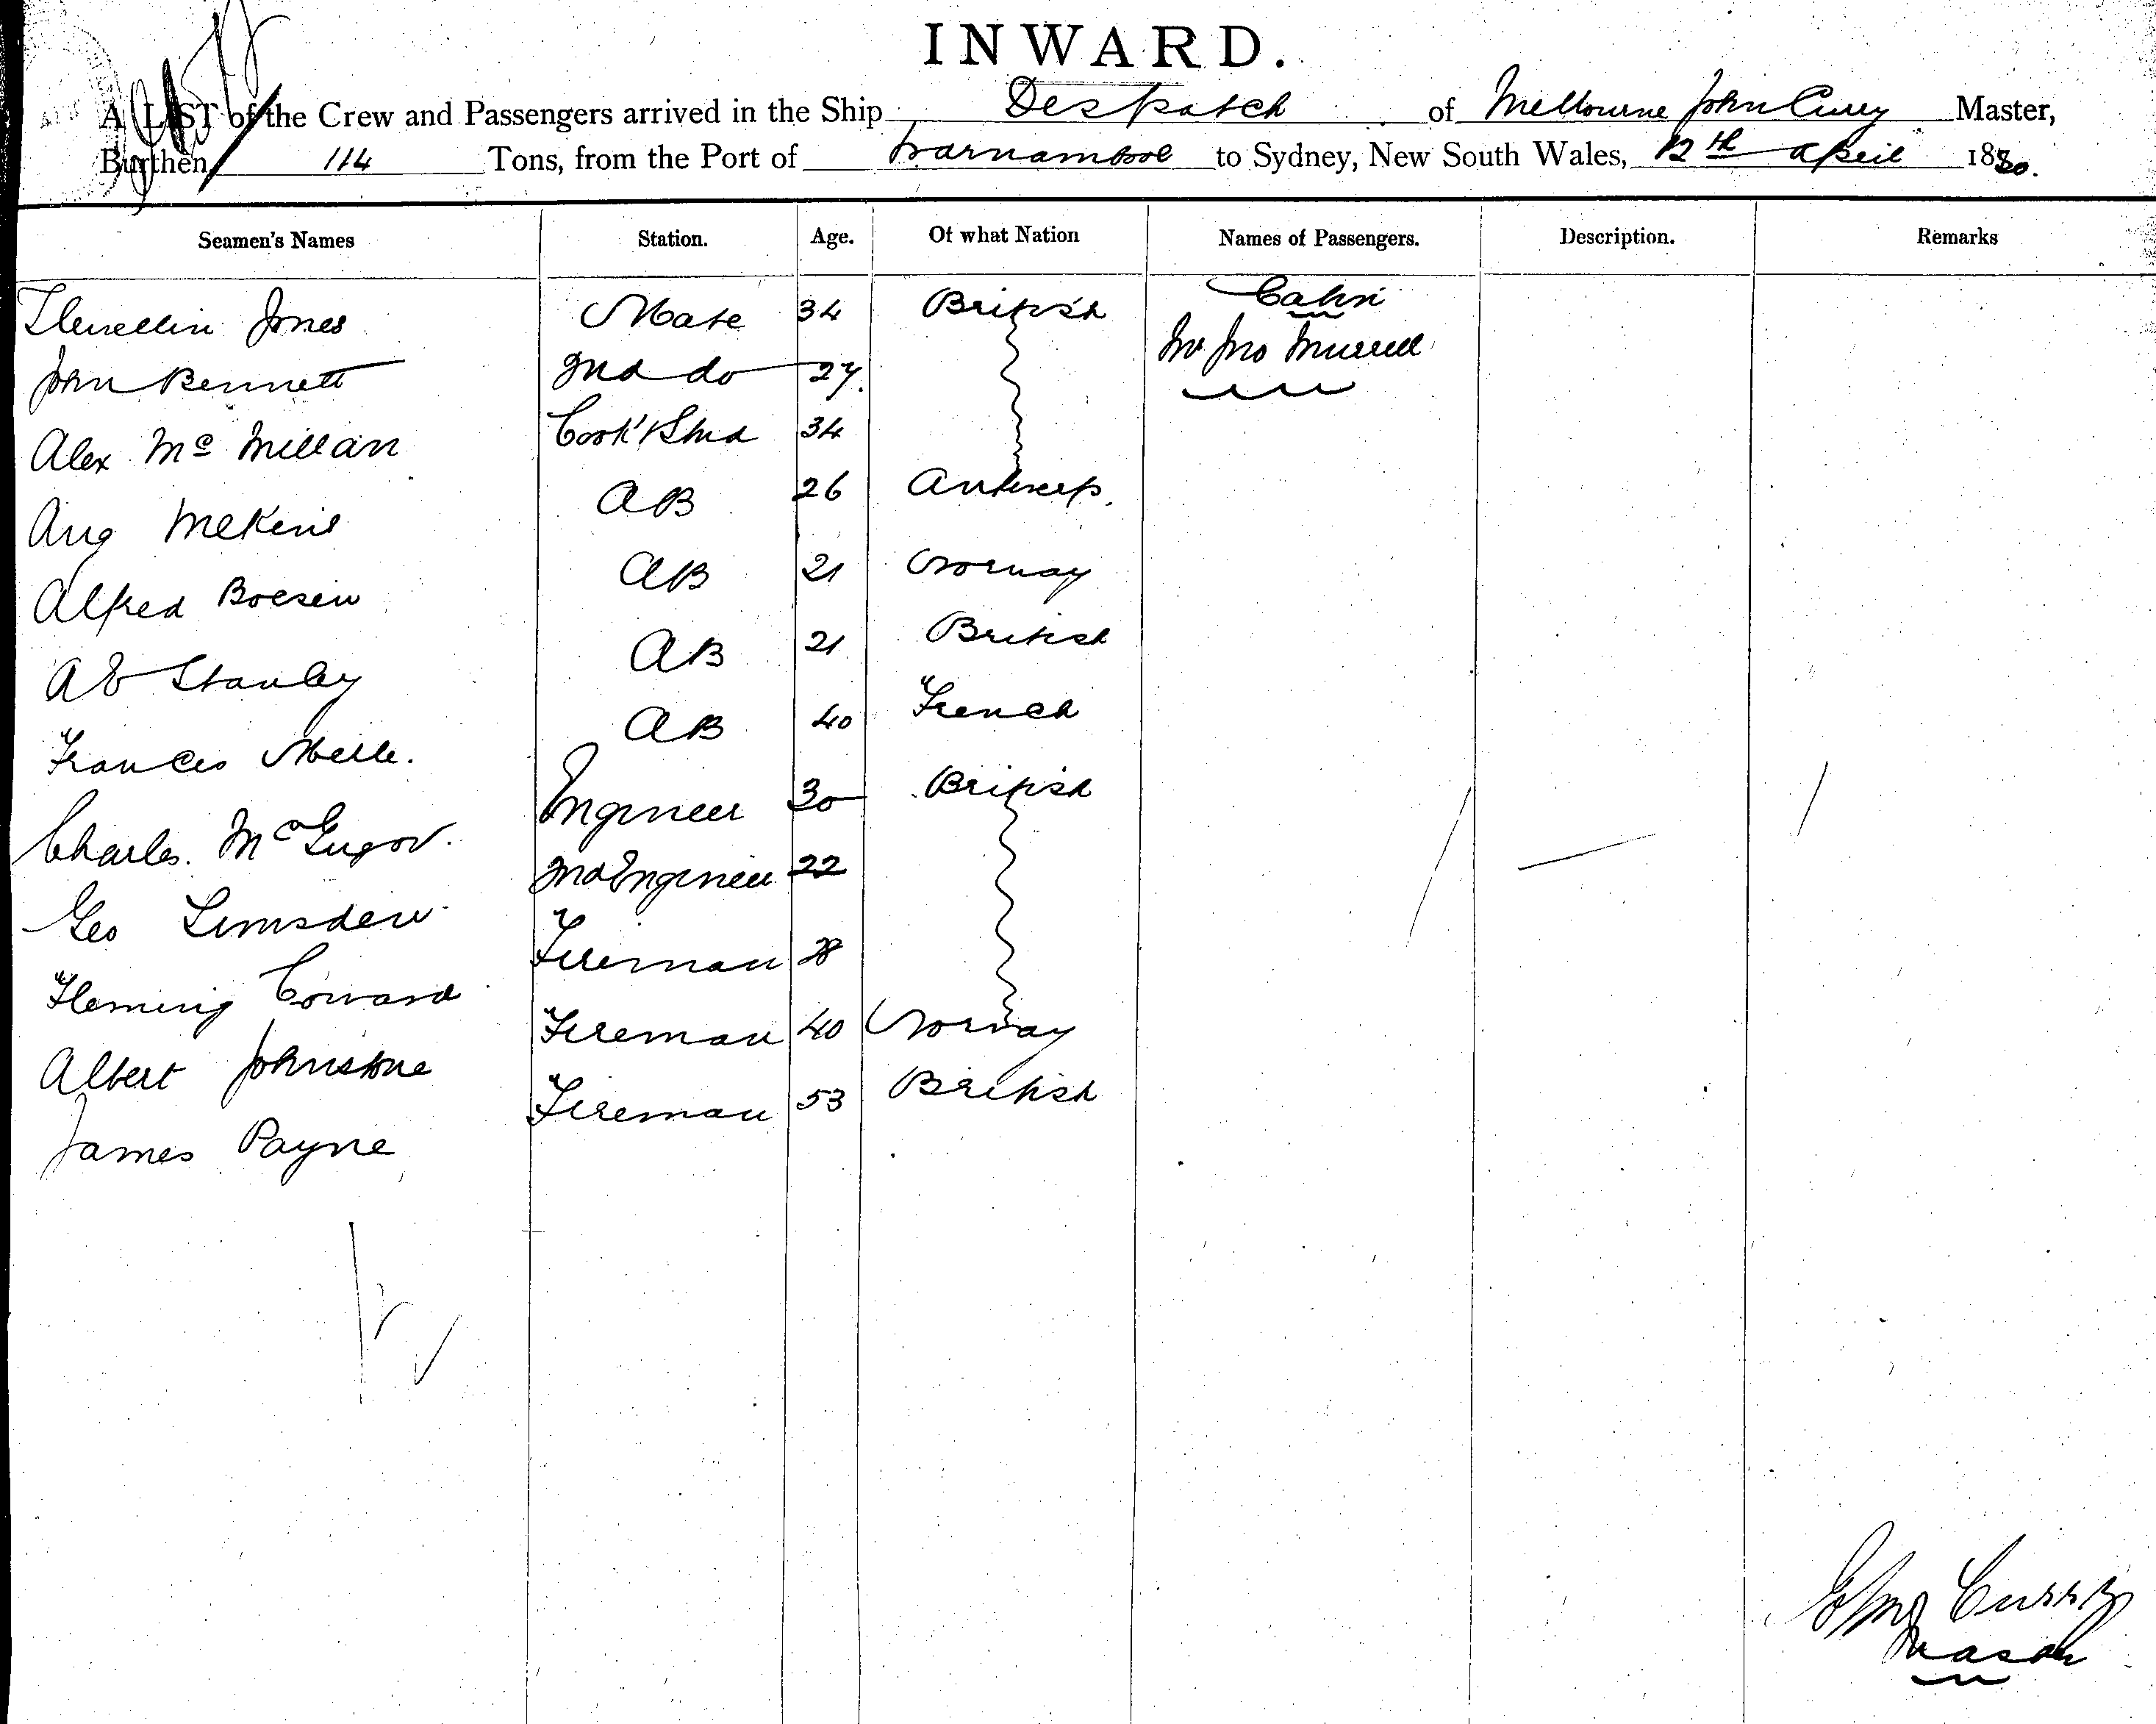 INWARD.
A LIST of the Crew and Passengers arrived in the Ship Despatch of Melbourne John Curry Master,
Burthen 114 Tons, from the Port of Warnambool to Sydney, New South Wales, 12th April 1880.
Seamen's Names Station. Age. Of what Nation Names of Passengers. Description. Remarks
Llewellin Jones Mate 34 British Cabin
John Bennett 2nd do 27. Mr Jno Murrell
Alex Mc Millan Cook & Stwd 34
Aug 26 AB Antwerp.
Alfred Boesen AB 21 Norway
A E Stanley AB 21 British
Frances AB 40 French
Charles. McGregor. Engineer 30 British
Geo Lumsden 2nd Engineer 22
Fleming Coward Fireman 28
Albert Johnstone Fireman 40 Norway
James Payne Fireman 53 British
Jno Curry
Master